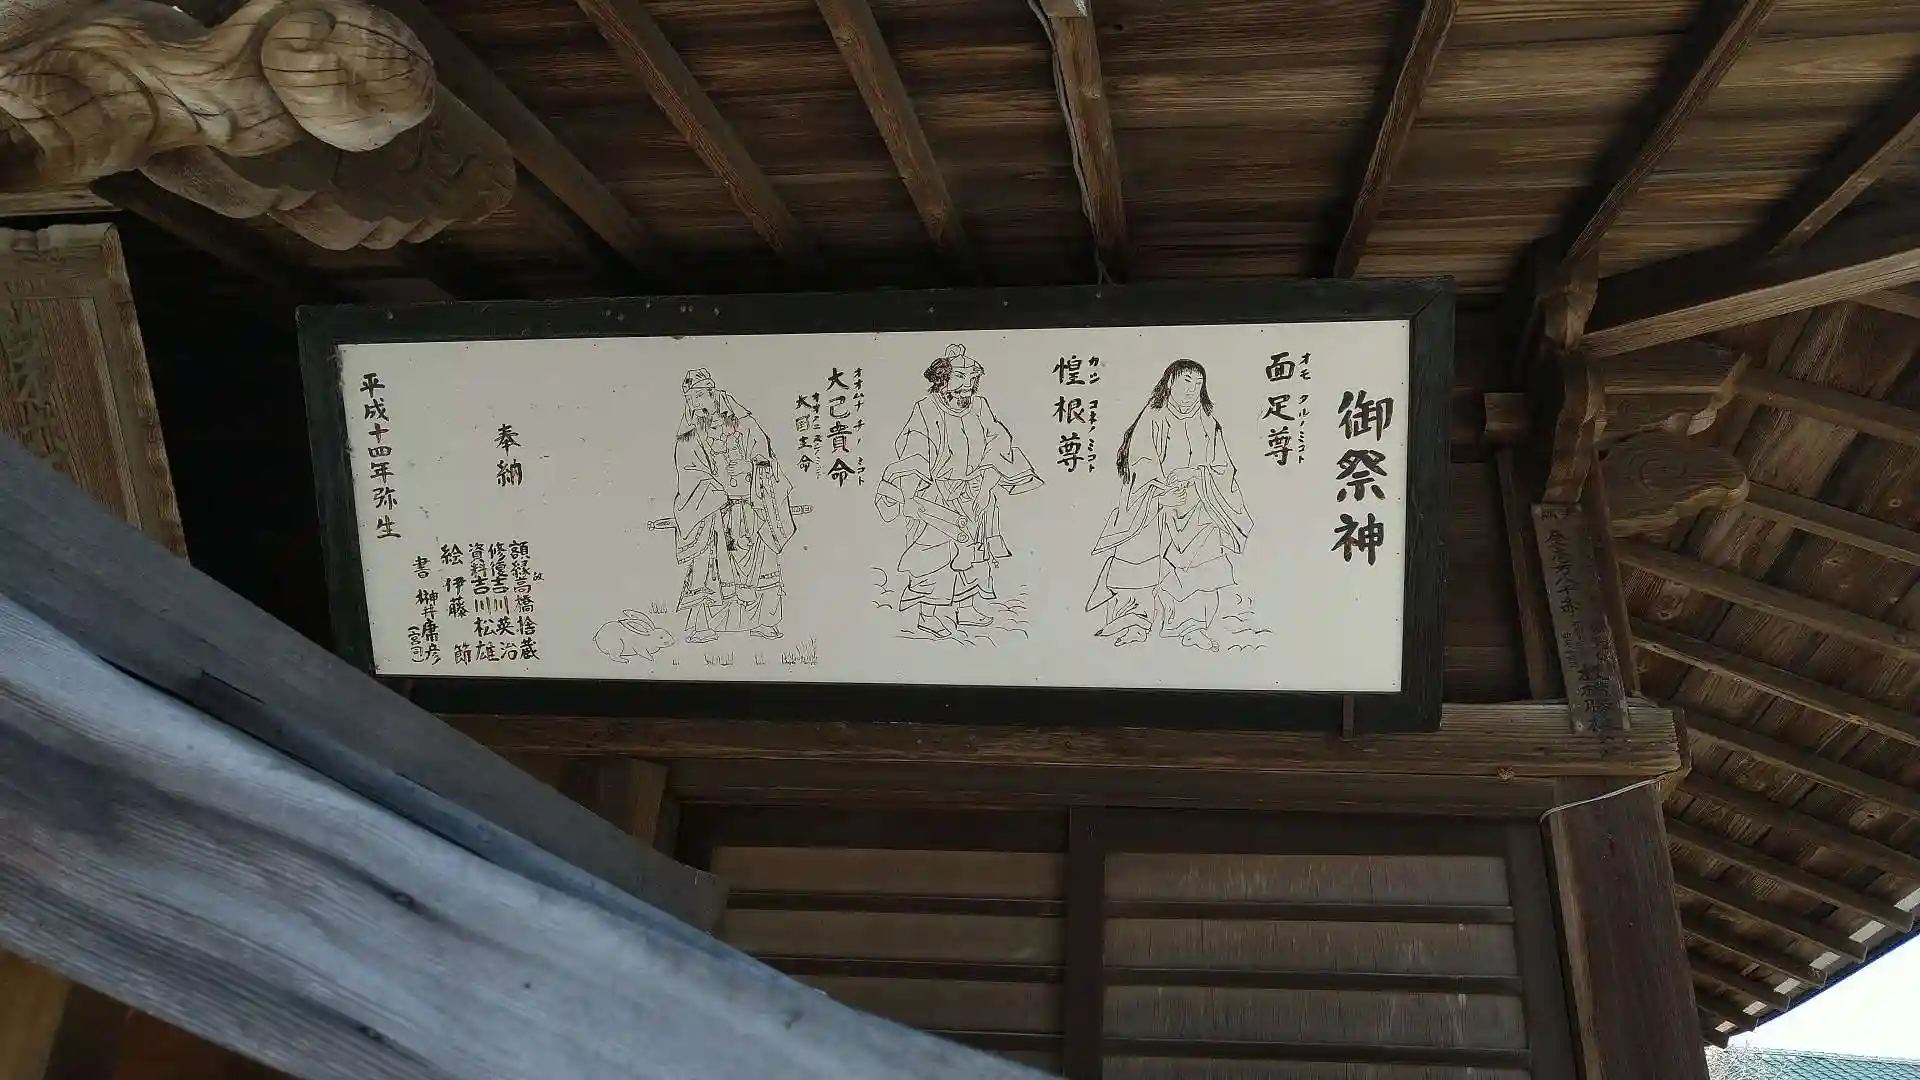 御祭神
面足尊
オモタルノミコト
惶根尊
カシコネノミコト
大己貴命
オオムナチノミコト
大国主命
オオクニヌシノミコト
奉納
額縁 故高橋捨蔵
修復 吉川英治
資料 吉川松雄
絵 伊藤節
書 榊井庸彦
(宮司)
平成十四年弥生